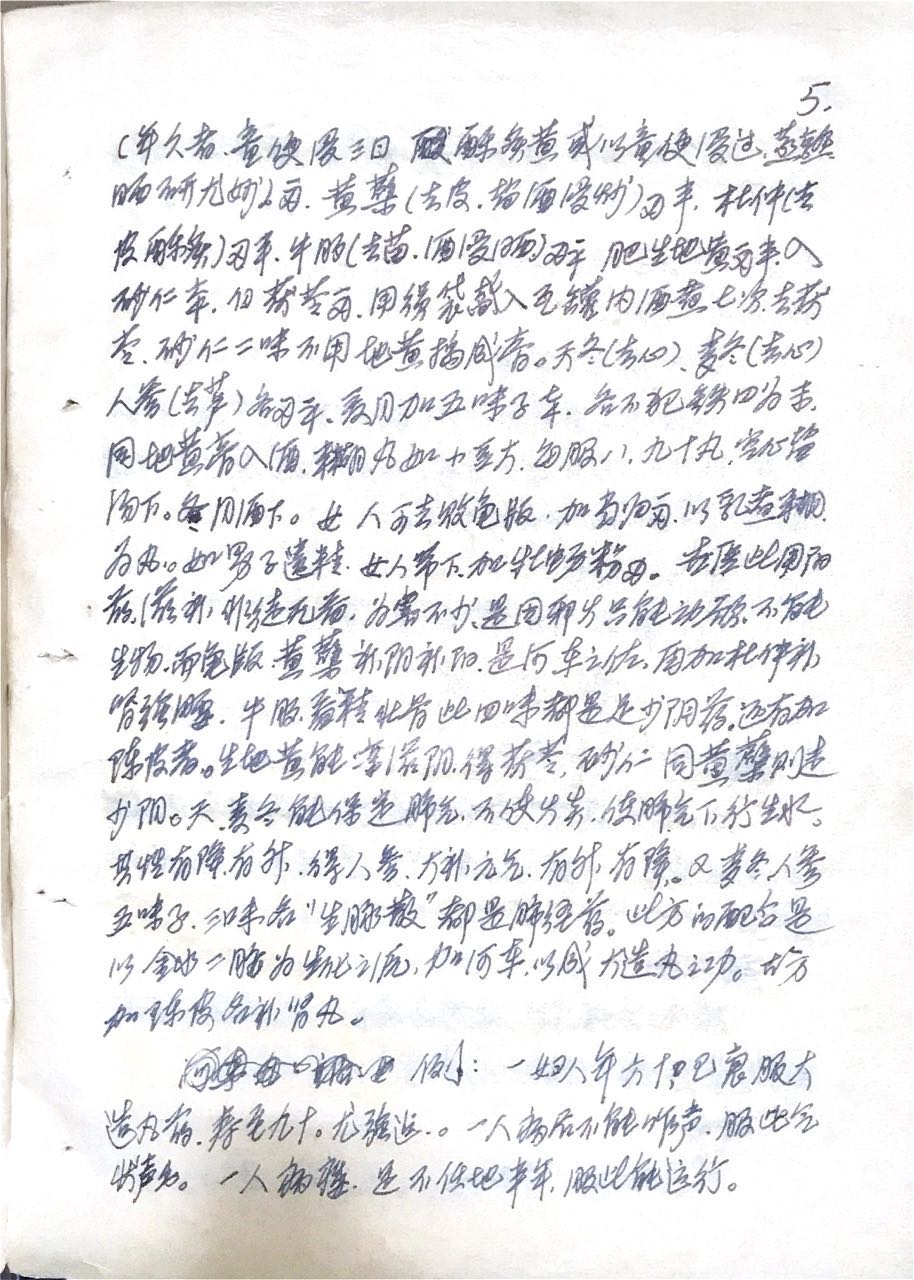 5.
(年久者、童便浸三日 酥炙黄或以童便浸过、蒸熟
晒研九炒)2两、黄蘗(去皮、盐酒浸炒)两半、杜仲(去
皮酥炙)两半、牛膝(去苗、酒浸晒)两半 肥生地黄两半、入
砂仁、白茯苓两、用绢袋盛入瓦罐内酒煮七次去茯
苓、砂仁二味不用地黄捣成膏。天冬(去心)、麦冬(去心)
人参(去芦)各两半、夏月加五味子、各不犯铁四为末、
同地黄膏入酒、糊丸如小豆大、每服八、九十丸、空心盐
汤下。冬月酒下。女人可去败龟版、加当归两、以乳煮糊
为丸。如男子遗精、女人带下、加牡蛎粉两。世医此用阳
药滋补、非徒无益、为害不少、是因邪火只能动欲、不能
生物、而龟版黄蘗补阴补阳、是河车之佐、用加杜仲补
肾强腰、牛膝益精壮骨此四味都是足少阴药、还有加
陈皮者。生地黄能凉滋阴、得茯苓、砂仁同黄蘗则走
少阴。天、麦冬能保定肺气、不使火炎、使肺气下行生水。
其性有降有升、得人参、大补元气、有升有降。又麦冬人参
五味子、三味名“生脉散”都是肺经药。此方的配合是
以金水二脏为生化之源、加河车、以成大造丸之功。古方
加陈皮名补肾丸。
例：一妇人年六十、已衰服大
造丸药、寿至九十。尤强健。一人病后不能作声、服此气
出声矣。一人病痿、足不任地半年、服此能远行。